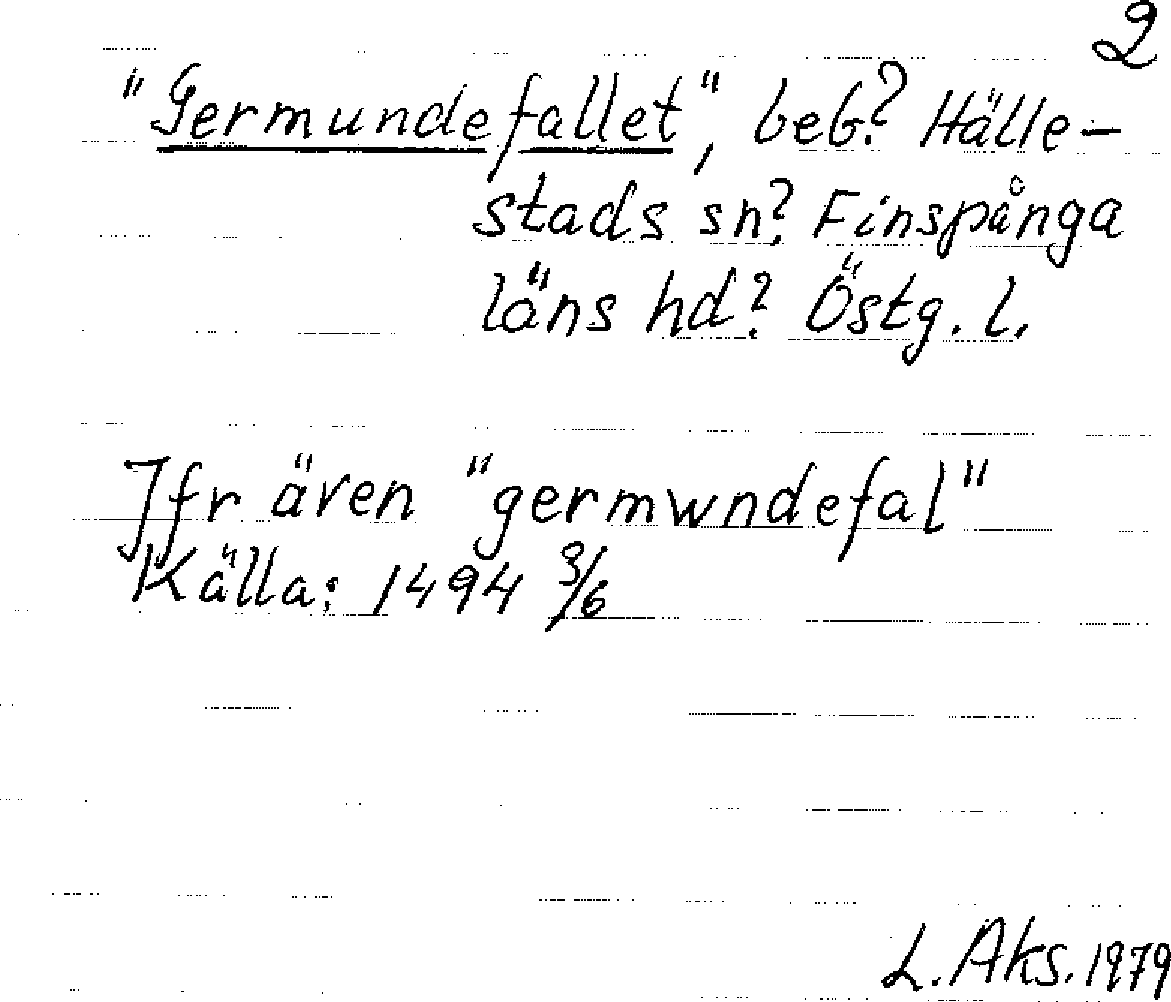 2
"Germundefallet", beb? Hälle-
stads sn? Finspånga
läns hd? Östg. l.
Jfr även "germwndefal"
Källa: 1494 3/6
L. Aks. 1979